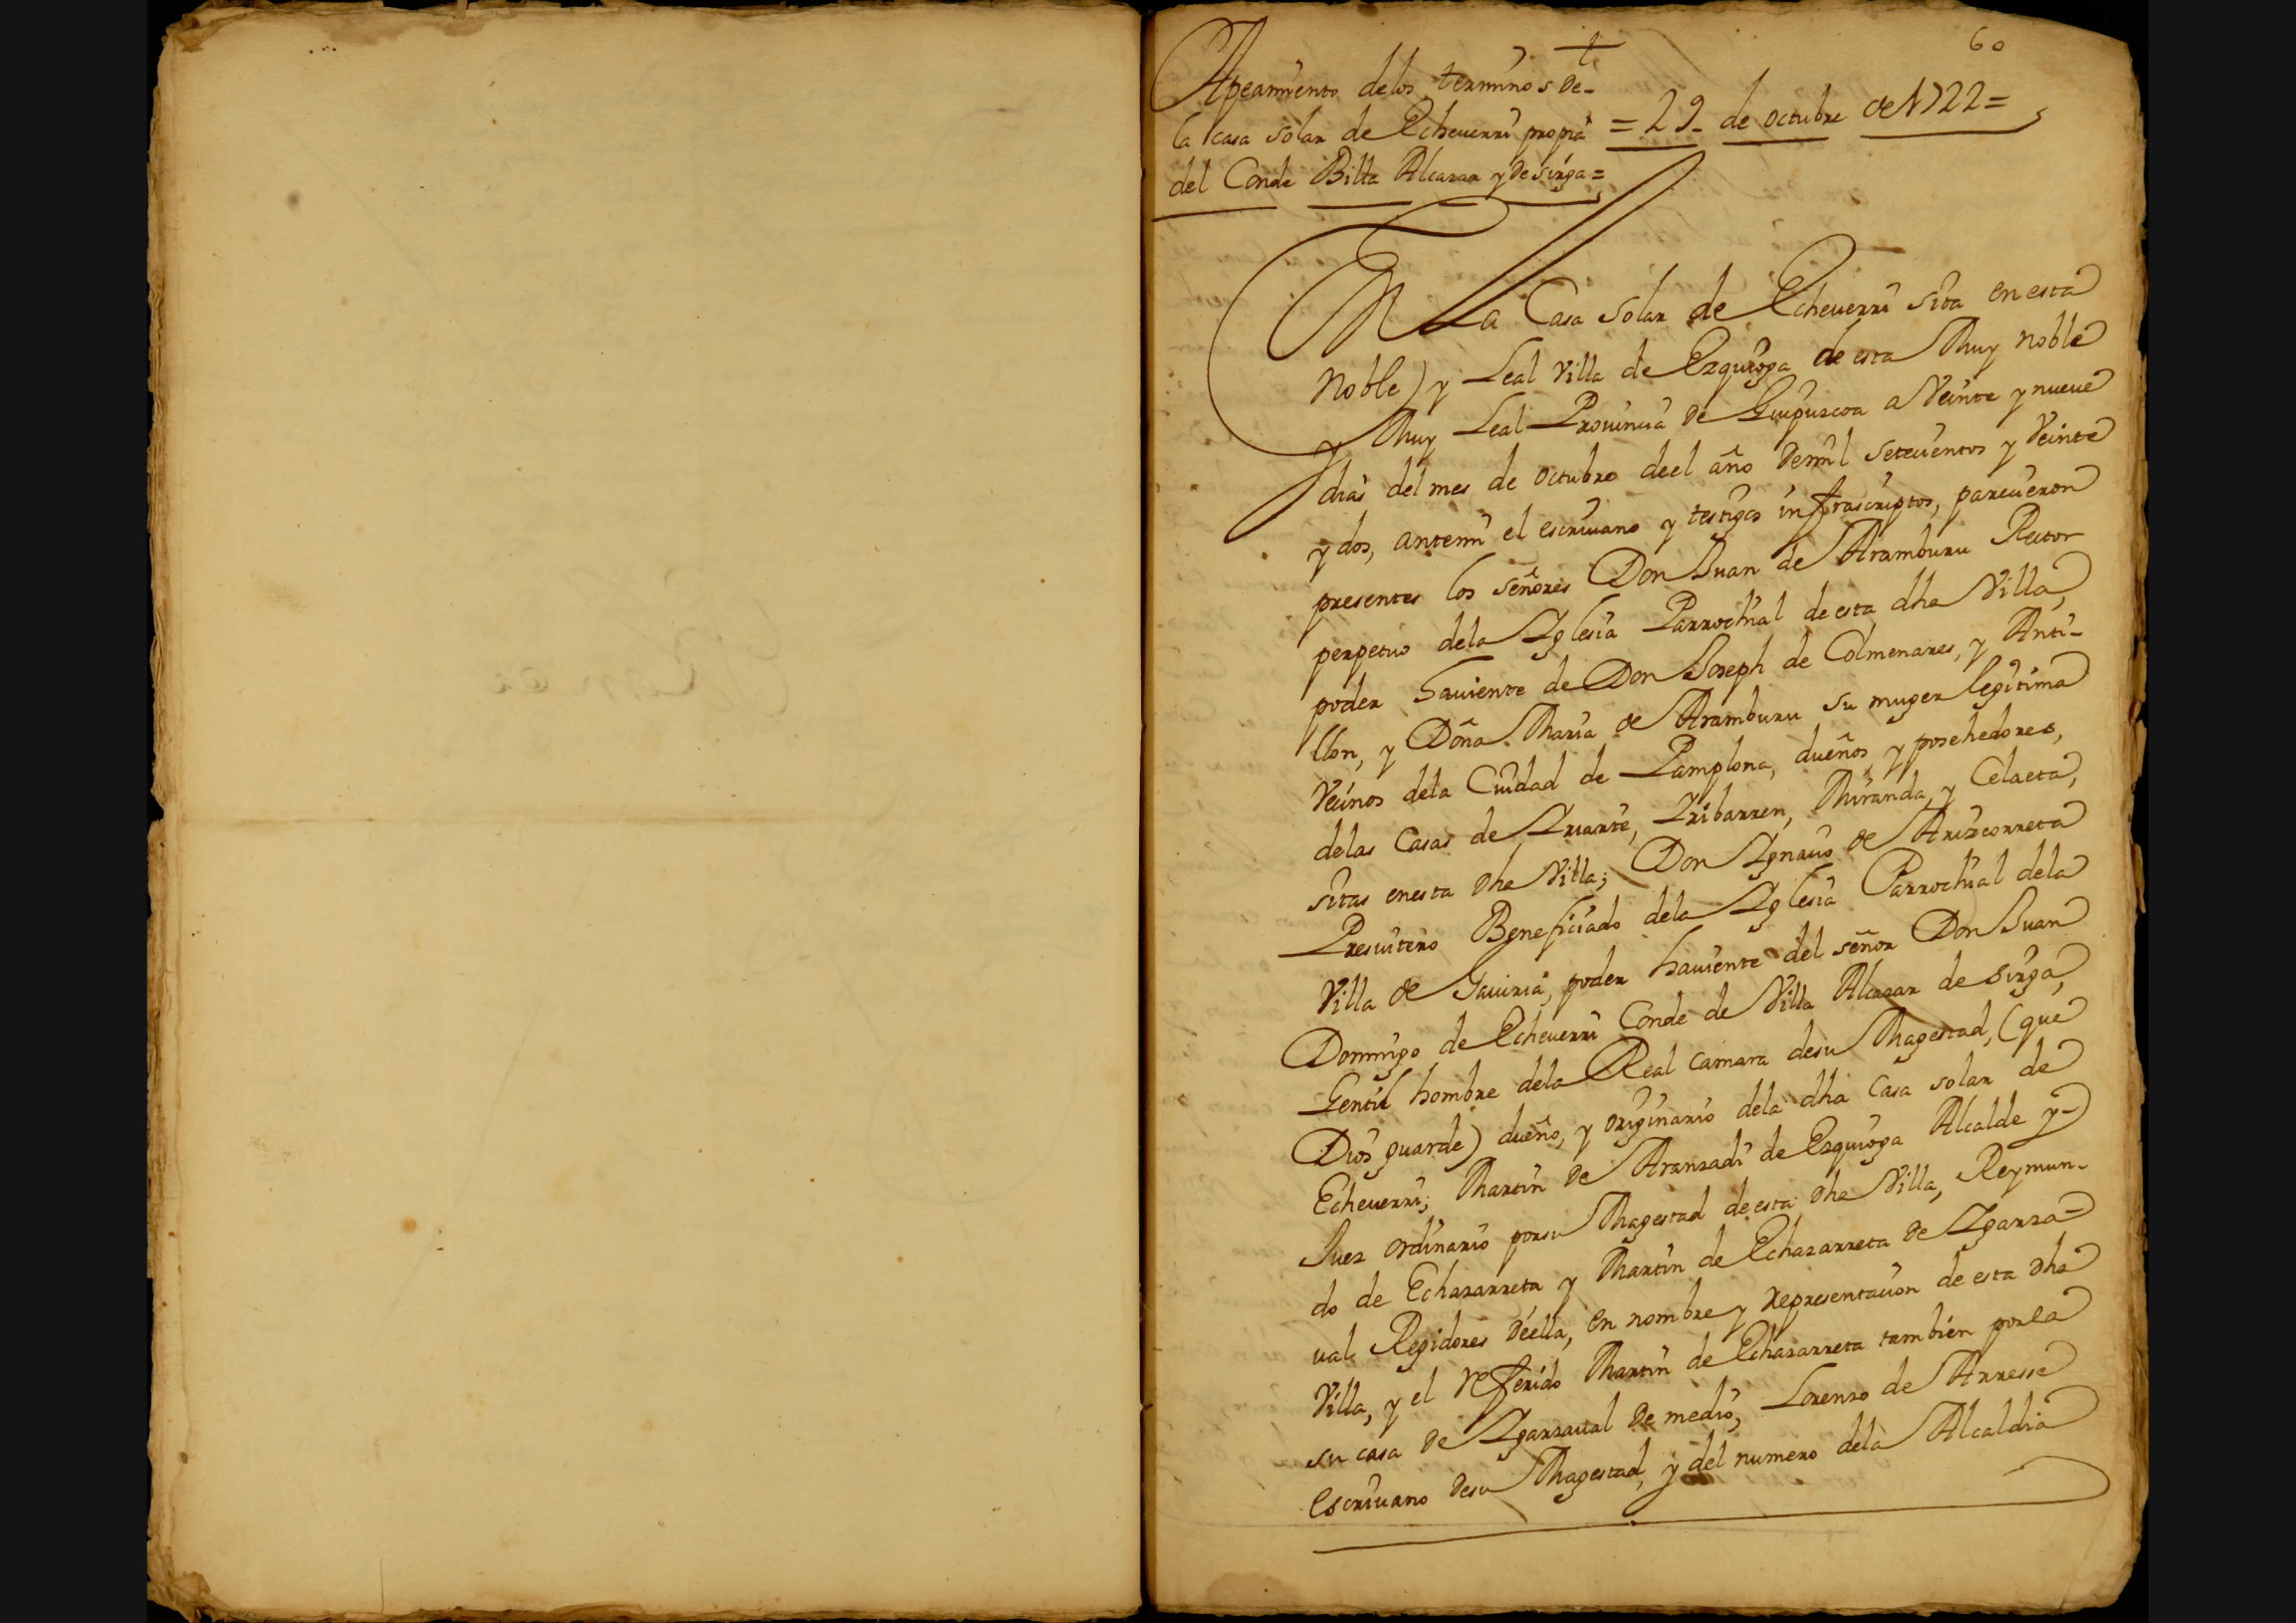 60
+
Apeamiento delos terminos de-
la casa solar de Echeuerri propia = 29 - de octubre de 1722 =
del Conde Billa Alcazar y de sirga =
En La Casa solar de Echeuerri sita en esta
Noble y Leal Villa de Ezquioga de esta Muy noble
y Muy Leal Prouincia de Guipuzcoa a Veinte y nueue
dias del mes de octubre deel año demil seteuentos y Veinte
y dos, antemi el escriuano y testigos infrascriptos, parecieron
presentes los señores Don Juan de Aramburu Rector
perpetuo dela Yglesia Parrochial de esta dha Villa,
poder hauiente de Don Joseph de Colmenares, y Anti-
llon, y Doña Maria de Aramburu su muger legitima
Vecinos dela Ciudad de Pamplona, dueños, y posehedores,
delas Casas de Yriarte, Yribarren, Miranda, y Celaeta,
sitas enesta dha Villa; Don Ygnacio de Arizcorreta
Presuitero Beneficiado dela Yglesia Parrochial dela
Villa de Gauiria, poder hauiente del señor Don Juan
Domingo de Echeuerri Conde de Villa Alcazar de sirga,
Gentil hombre dela Real camara desu Magestad, (que
Dios guarde) dueño, y originario dela dha Casa solar de
Echeuerri; Martin de Aranzadi de Ezquioga Alcalde y-
Juez ordinario porsu Magestad deesta dha Villa, Reymun-
do de Echazarreta y Martin de Echazarreta de Ygarza-
ual Regidores deella, en nombre y representacion de esta dha
Villa, y el referido Martin de Echazarreta tambien porla
su casa de Ygarzaual de medio, Lorenzo de Arresse
escriuano desu Magestad, y del numero dela Alcaldia